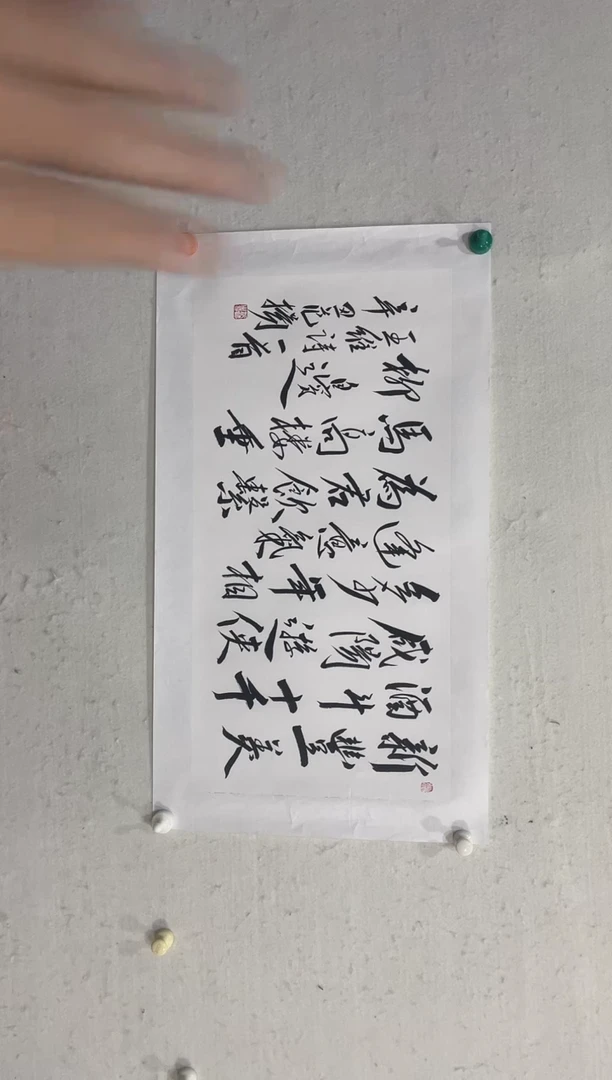 新豐美
酒斗十千
咸陽遊俠
多少年相
逢意氣
為君飲繫
馬高樓垂
柳邊
王維詩一首
辛丑范